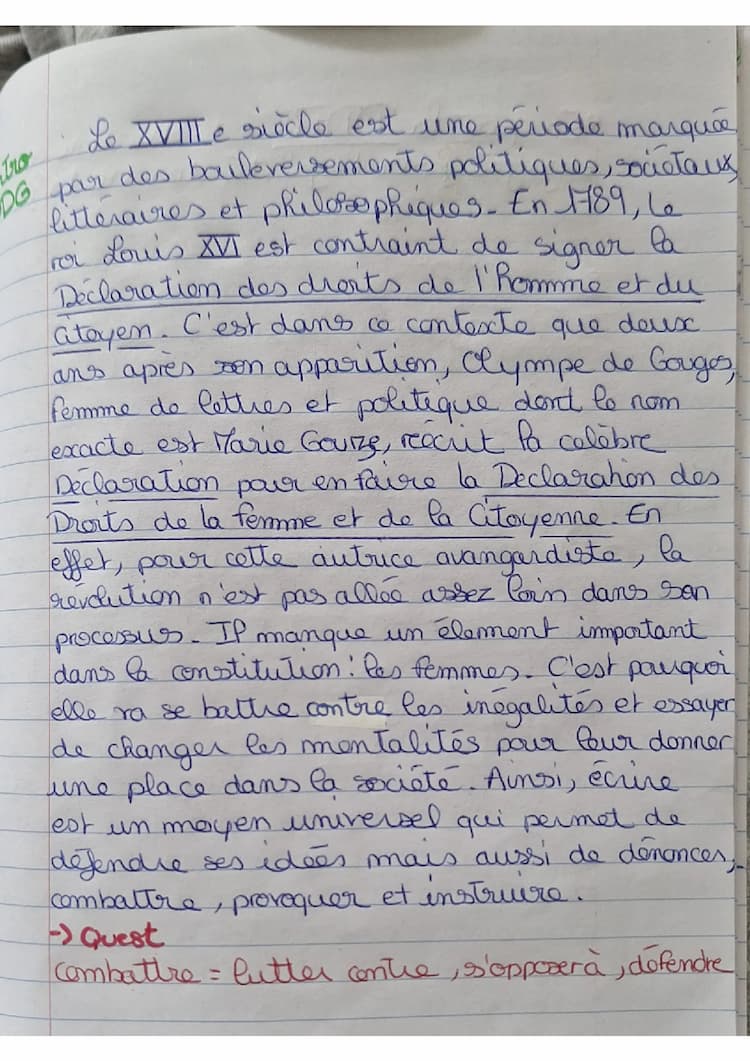 Intro
DG
Le XVIIIe siècle est une période marquée
par des bouleversements politiques, sociétaux,
littéraires et philosophiques. En 1789, le
roi Louis XVI est contraint de signer la
Déclaration des droits de l'Homme et du
Citoyen. C'est dans ce contexte que deux
ans après son apparition, Olympe de Gouges,
femme de lettres et politique dont le nom
exacte est Marie Gouze, réécrit la célèbre
Déclaration pour en faire la Declaration des
Droits de la femme et de la Citoyenne. En
effet, pour cette autrice avangardiste, la
révolution n'est pas allée assez loin dans son
processus. Il manque un élement important
dans la constitution : les femmes. C'est pourquoi
elle va se battre contre les inégalités et essayer
de changer les mentalités pour leur donner
une place dans la société. Ainsi, écrire
est un moyen universel qui permet de
défendre ses idées mais aussi de dénoncer,
combattre, provoquer et instruire.
-> Quest
combattre = lutter contre, s'opposer à, défendre